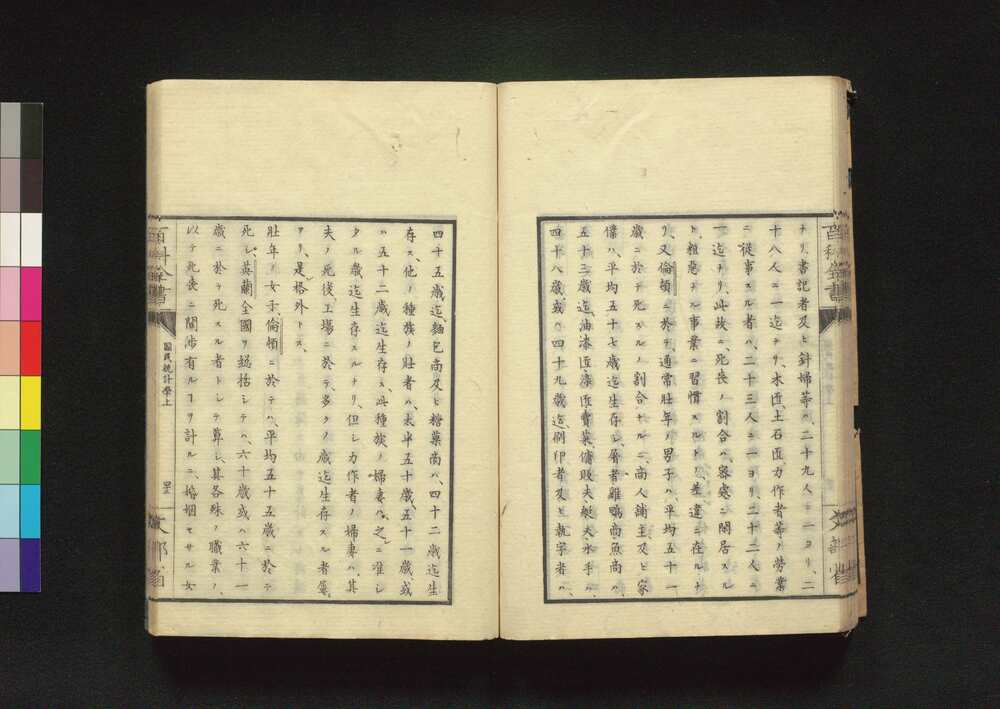 ナリ、書記者及ヒ針婦等ハ、二十九人ニ一ヨリ、二
十八人ニ一迄ナリ、木匠、土石匠、力作者等ノ労業
ニ從事スル者ハ、二十三人ニ一ヨリ、二十二人ニ
一迄ナリ、此故ニ死喪ノ割合ハ、窮處ニ閑居スル
ト、粗惡ナル事業ニ習慣スルトノ差違ニ在ルナ
リ、又倫頓ニ於テ通常壯年ノ男子ハ、平均五十一
歳ニ於テ死スルノ割合ナルニ、商人舗主及ヒ家
僕ハ、平均五十七歳迄生存シ、屠者雞鴨商魚商ハ、
五十三歳迄、油漆匠、漆匠、賣菜傭販夫、艇夫、水手ハ、
四十八歳或ハ四十九歳迄、刷印者及ヒ執字者ハ、
四十五歳迄、麵包商及ヒ糖菓商ハ、四十二歳迄生
存ス、他ノ種族ノ壯者ハ、大半五十歳、五十一歳或
ハ五十二歳迄生存ス、此種族ノ婦妻ハ、之ニ准シ
タル歳迄生存スルナリ、但シ力作者ノ婦妻ハ、其
夫ノ死後、工場ニ於テ、多クノ歳迄生存スル者寡
ナリ、是格外トス、
壯年ノ女子、倫頓ニ於テハ、平均五十五歳ニ於テ
死シ、英蘭全國ヲ總括シテハ、六十歳或ハ六十一
歳ニ於テ死スル者トシテ算シ、其各殊ノ職業ノ
以テ死喪ニ關渉有ルヿヲ計ルニ、婚姻セサル女
百科全書
國民統計學上
文部省
百科全書
文部省